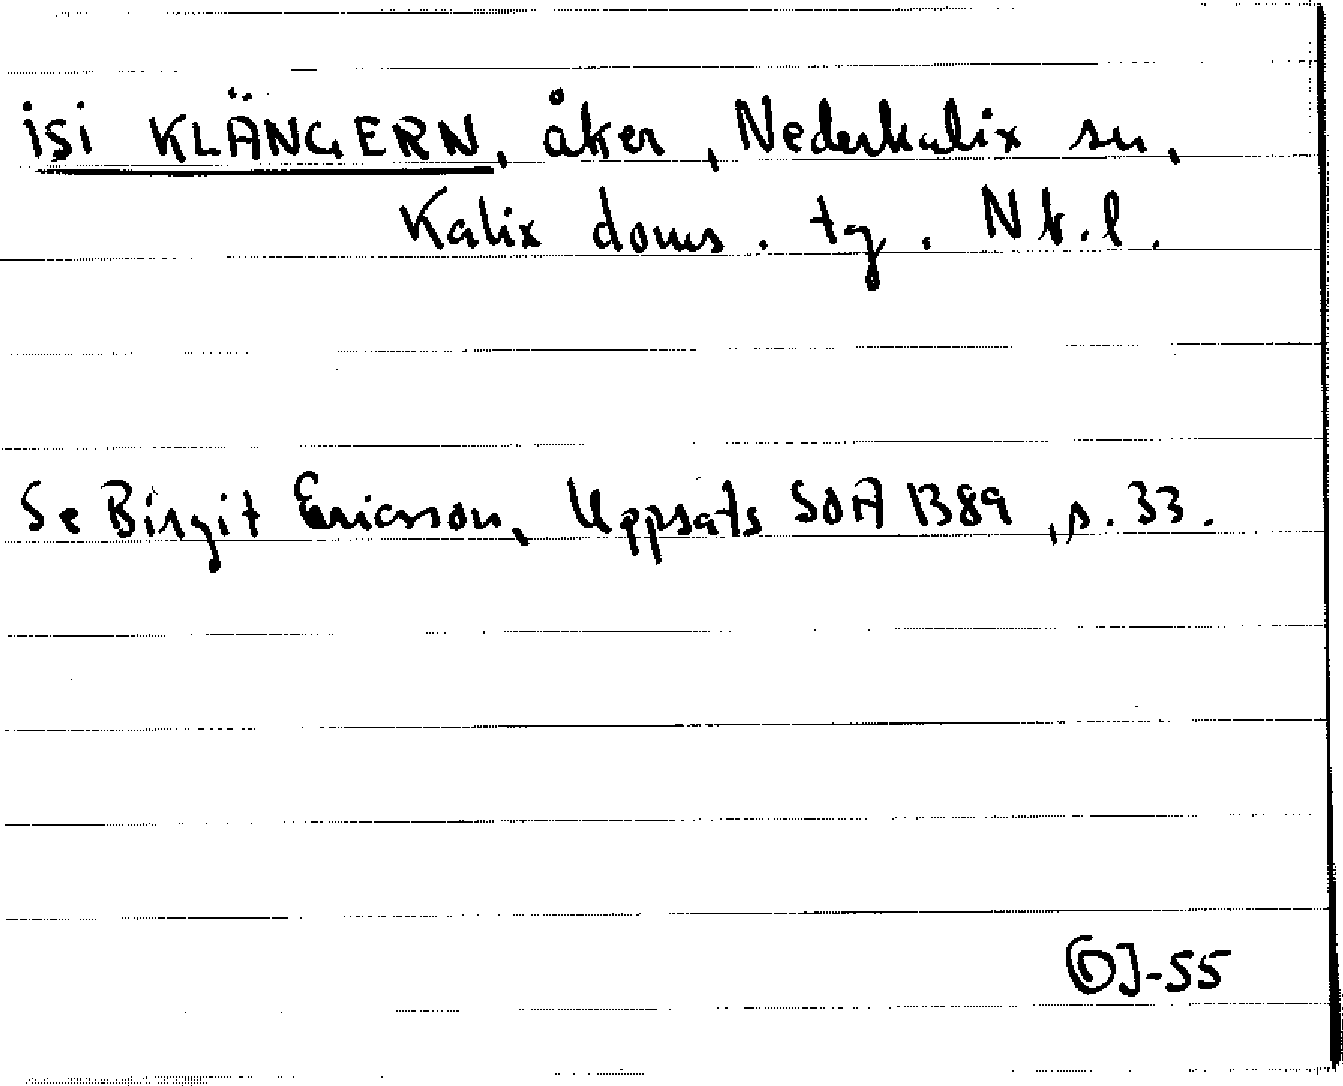 isi KLÄNGERN, åker, Nederkalix sn,
Kalix doms. tg. Nb.l.
Se Birgit Ericsson, Uppsats SOA 1389, s. 33.